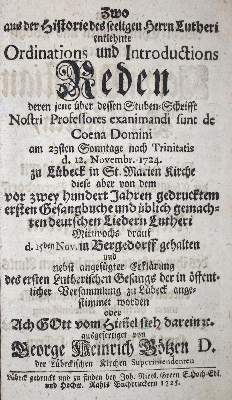 Zwo
aus der Historie des seeligen Herrn Lutheri
entlehnte
Ordinations und Introductions
Reden
deren jene über dessen Stuben-Schrifft
Nostri Professores examinandi sunt de
Coena Domini
am 23sten Sonntage nach Trinitatis
d. 12. Novembr. 1724.
zu Lübeck in St. Marien Kirche
diese aber von dem
vor zwey hundert Jahren gedrucktem
ersten Gesangbuche und üblich gemach-
ten deutschen Liedern Lutheri
Mittwochs drauf
d. 15den Nov. in Bergedorff gehalten
und
nebst angefügter Erklärung
des ersten Lutherischen Gesangs der in öffent-
licher Versammlung zu Lübeck ange-
stimmet worden
oder
Ach GOtt vom Himel sieh darein ꝛc.
ausgefertiget von
George Heinrich Götzen D.
der Lübeckischen Kirchen Superintendenten
Lübeck gedruckt und zu finden bey Joh. Nicol. Green E. Hoch-Edl.
und Hochw. Rahts Buchdruckern 1725.